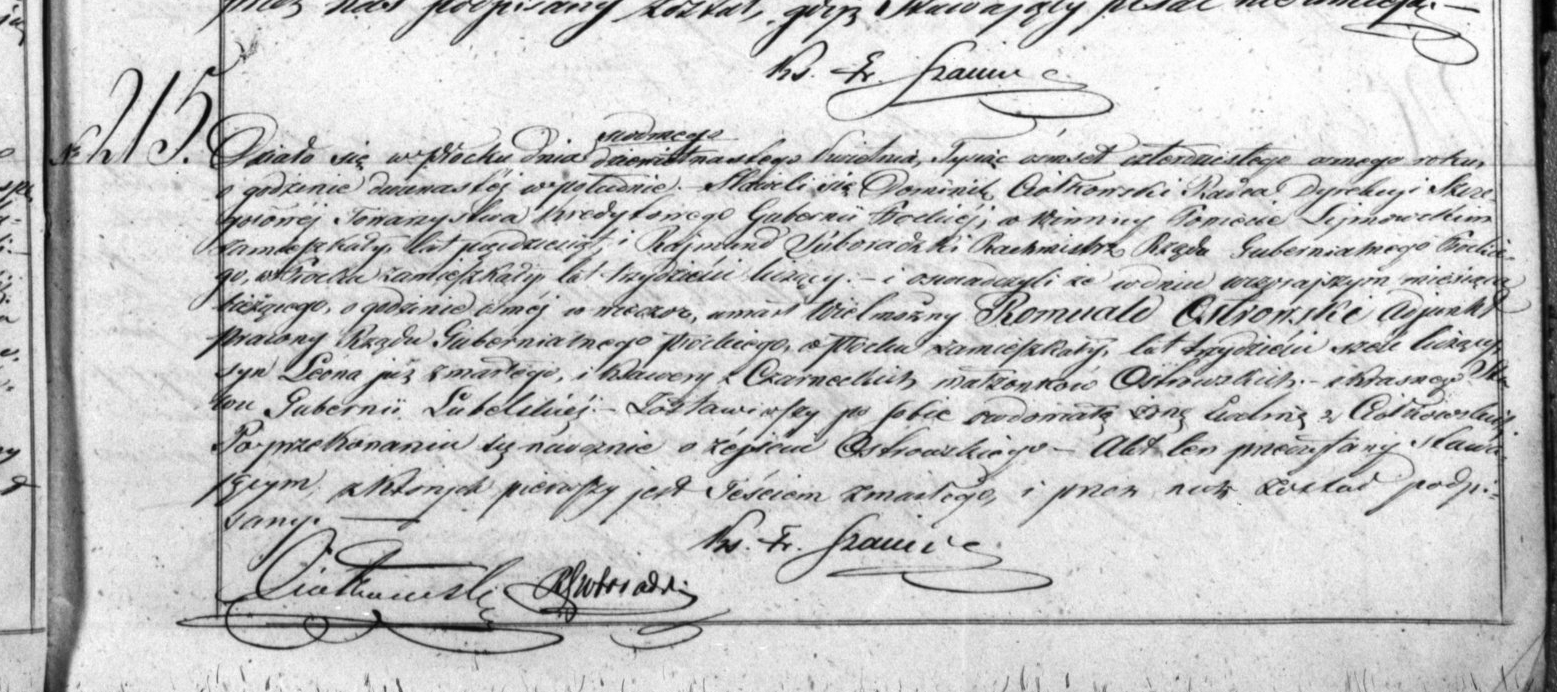 przez nas podpisany został, gdyż Stawający pisać nie umieją.—
Ks. Fr.
№ 215.
siódmego
Działo się w Płocku dnia dziewiętnastego Kwietnia, Tysiąc ośmset czterdziestego osmego roku,
o godzinie dwunastéj w południe.— Stawili się Dominik Ciółkowski Radca Dyrekcyi Szcze
gółowéj Towarzystwa Kredytowego Gubernii Płockiéj, w Winnicy Powiecie
zamieszkały, lat pięćdziesiąt, i Rajmund Rachmistrz Rządu Gubernialnego Płockie-
go, w Płocku zamieszkały lat trzydzieści liczący.— i oświadczyli że w dniu wczorajszym miesiąca
bieżącego, o godzinie ósméj w wieczór, umarł Wielmożny Romuald Ostrowski Adjunkt
Prawny Rządu Gubernialnego Płockiego, w Płocku zamieszkały, lat trzydzieści sześć liczący,
syn Leona już zmarłego, i Xawery z Czarneckich małżonków Ostrowskich.— z Krasnego Sta
wu Gubernii Lubelskiéj.— Zostawiwszy po sobie owdowiałą żonę Ludwikę z Ciółkowskich
Po przekonaniu się naocznie o zejściu Ostrowskiego — Akt ten przeczytany Stawa-
jącym, z których pierwszy jest Teściem zmarłego, i przez nich został podpi-
sany.—
Ks. Fr.
Ciółkowski